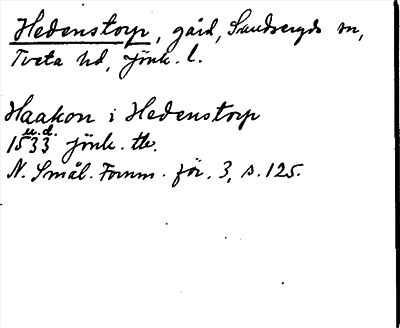 Hedenstorp, gård, Sandseryds sn,
Tveta hd, Jönk. l.
Haakon i Hedenstorp
u.d.
1533 Jönk. tb.
N. Smål. Fornm. för. 3, s. 125.